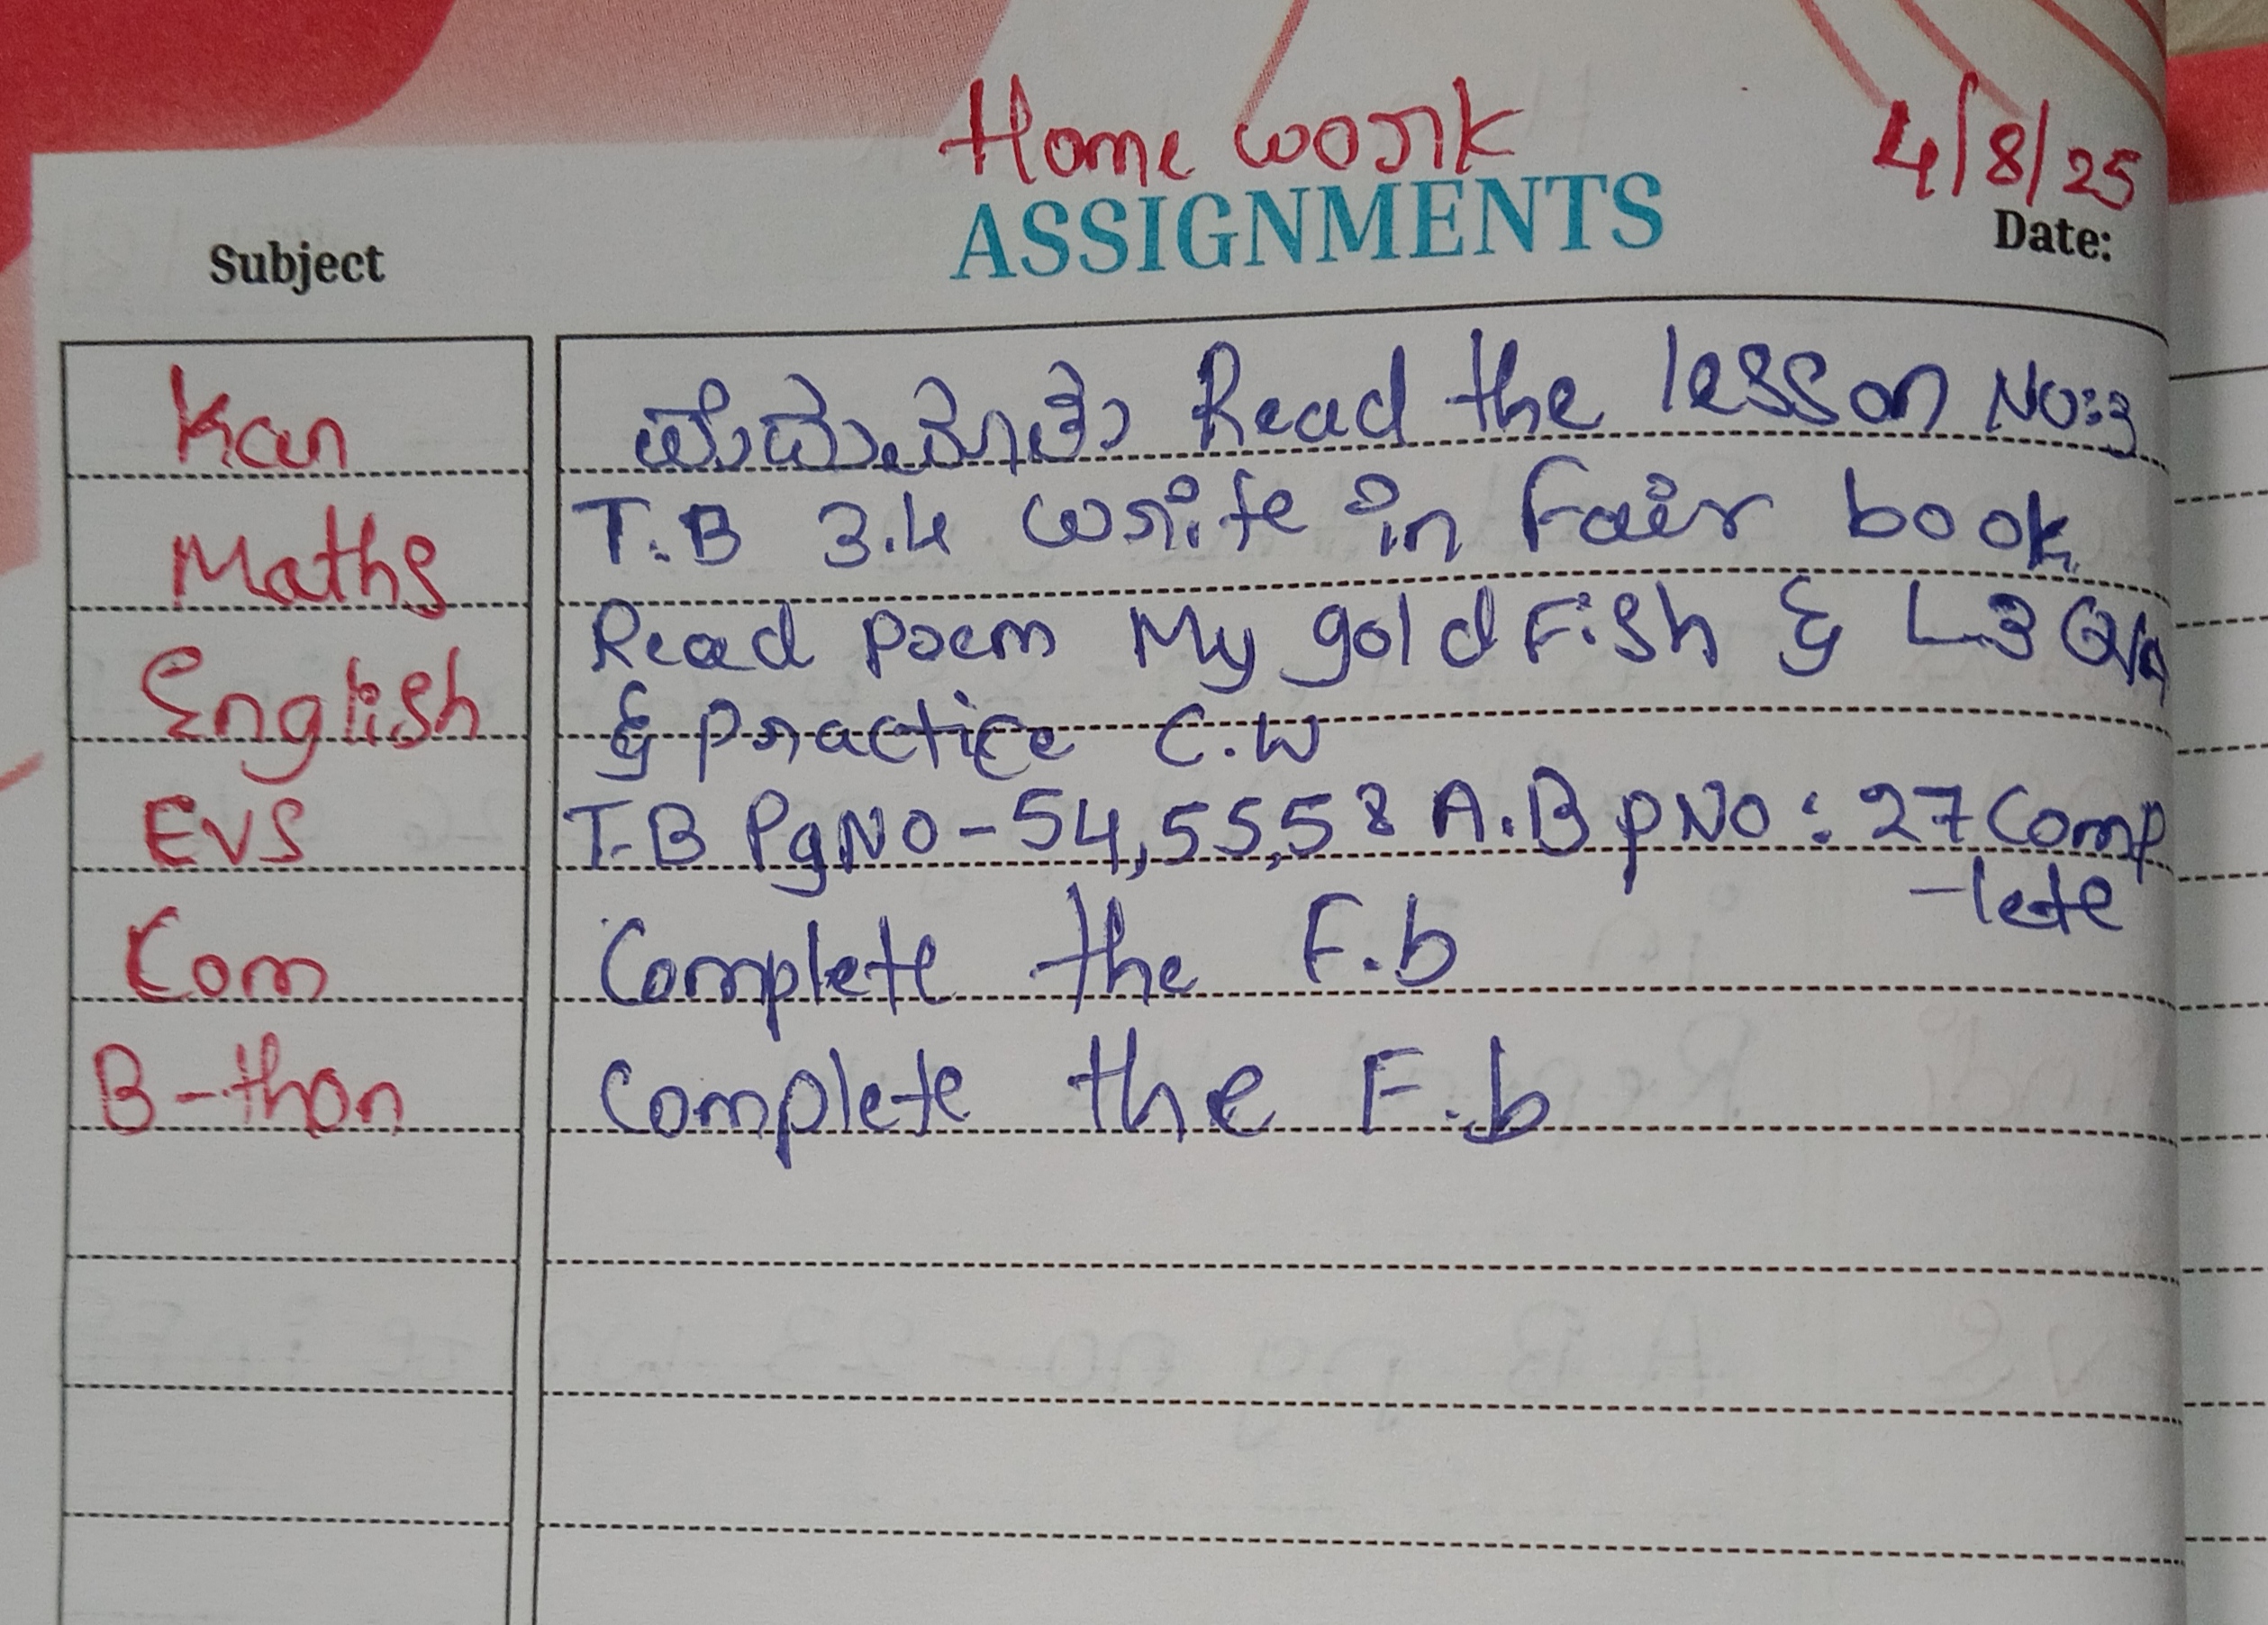 Home work
4/8/25
ASSIGNMENTS
Subject
Date:
Kan Read the lesson No:3
Maths T.B 3.4 write in Fair book
English Read poem My gold Fish & L3 Q/A
& practice C.W
EVS T.B PgNO-54,55,58 A.B pNo: 27 Comp
-lete
Com Complete the F.b
B-thon Complete the F.b